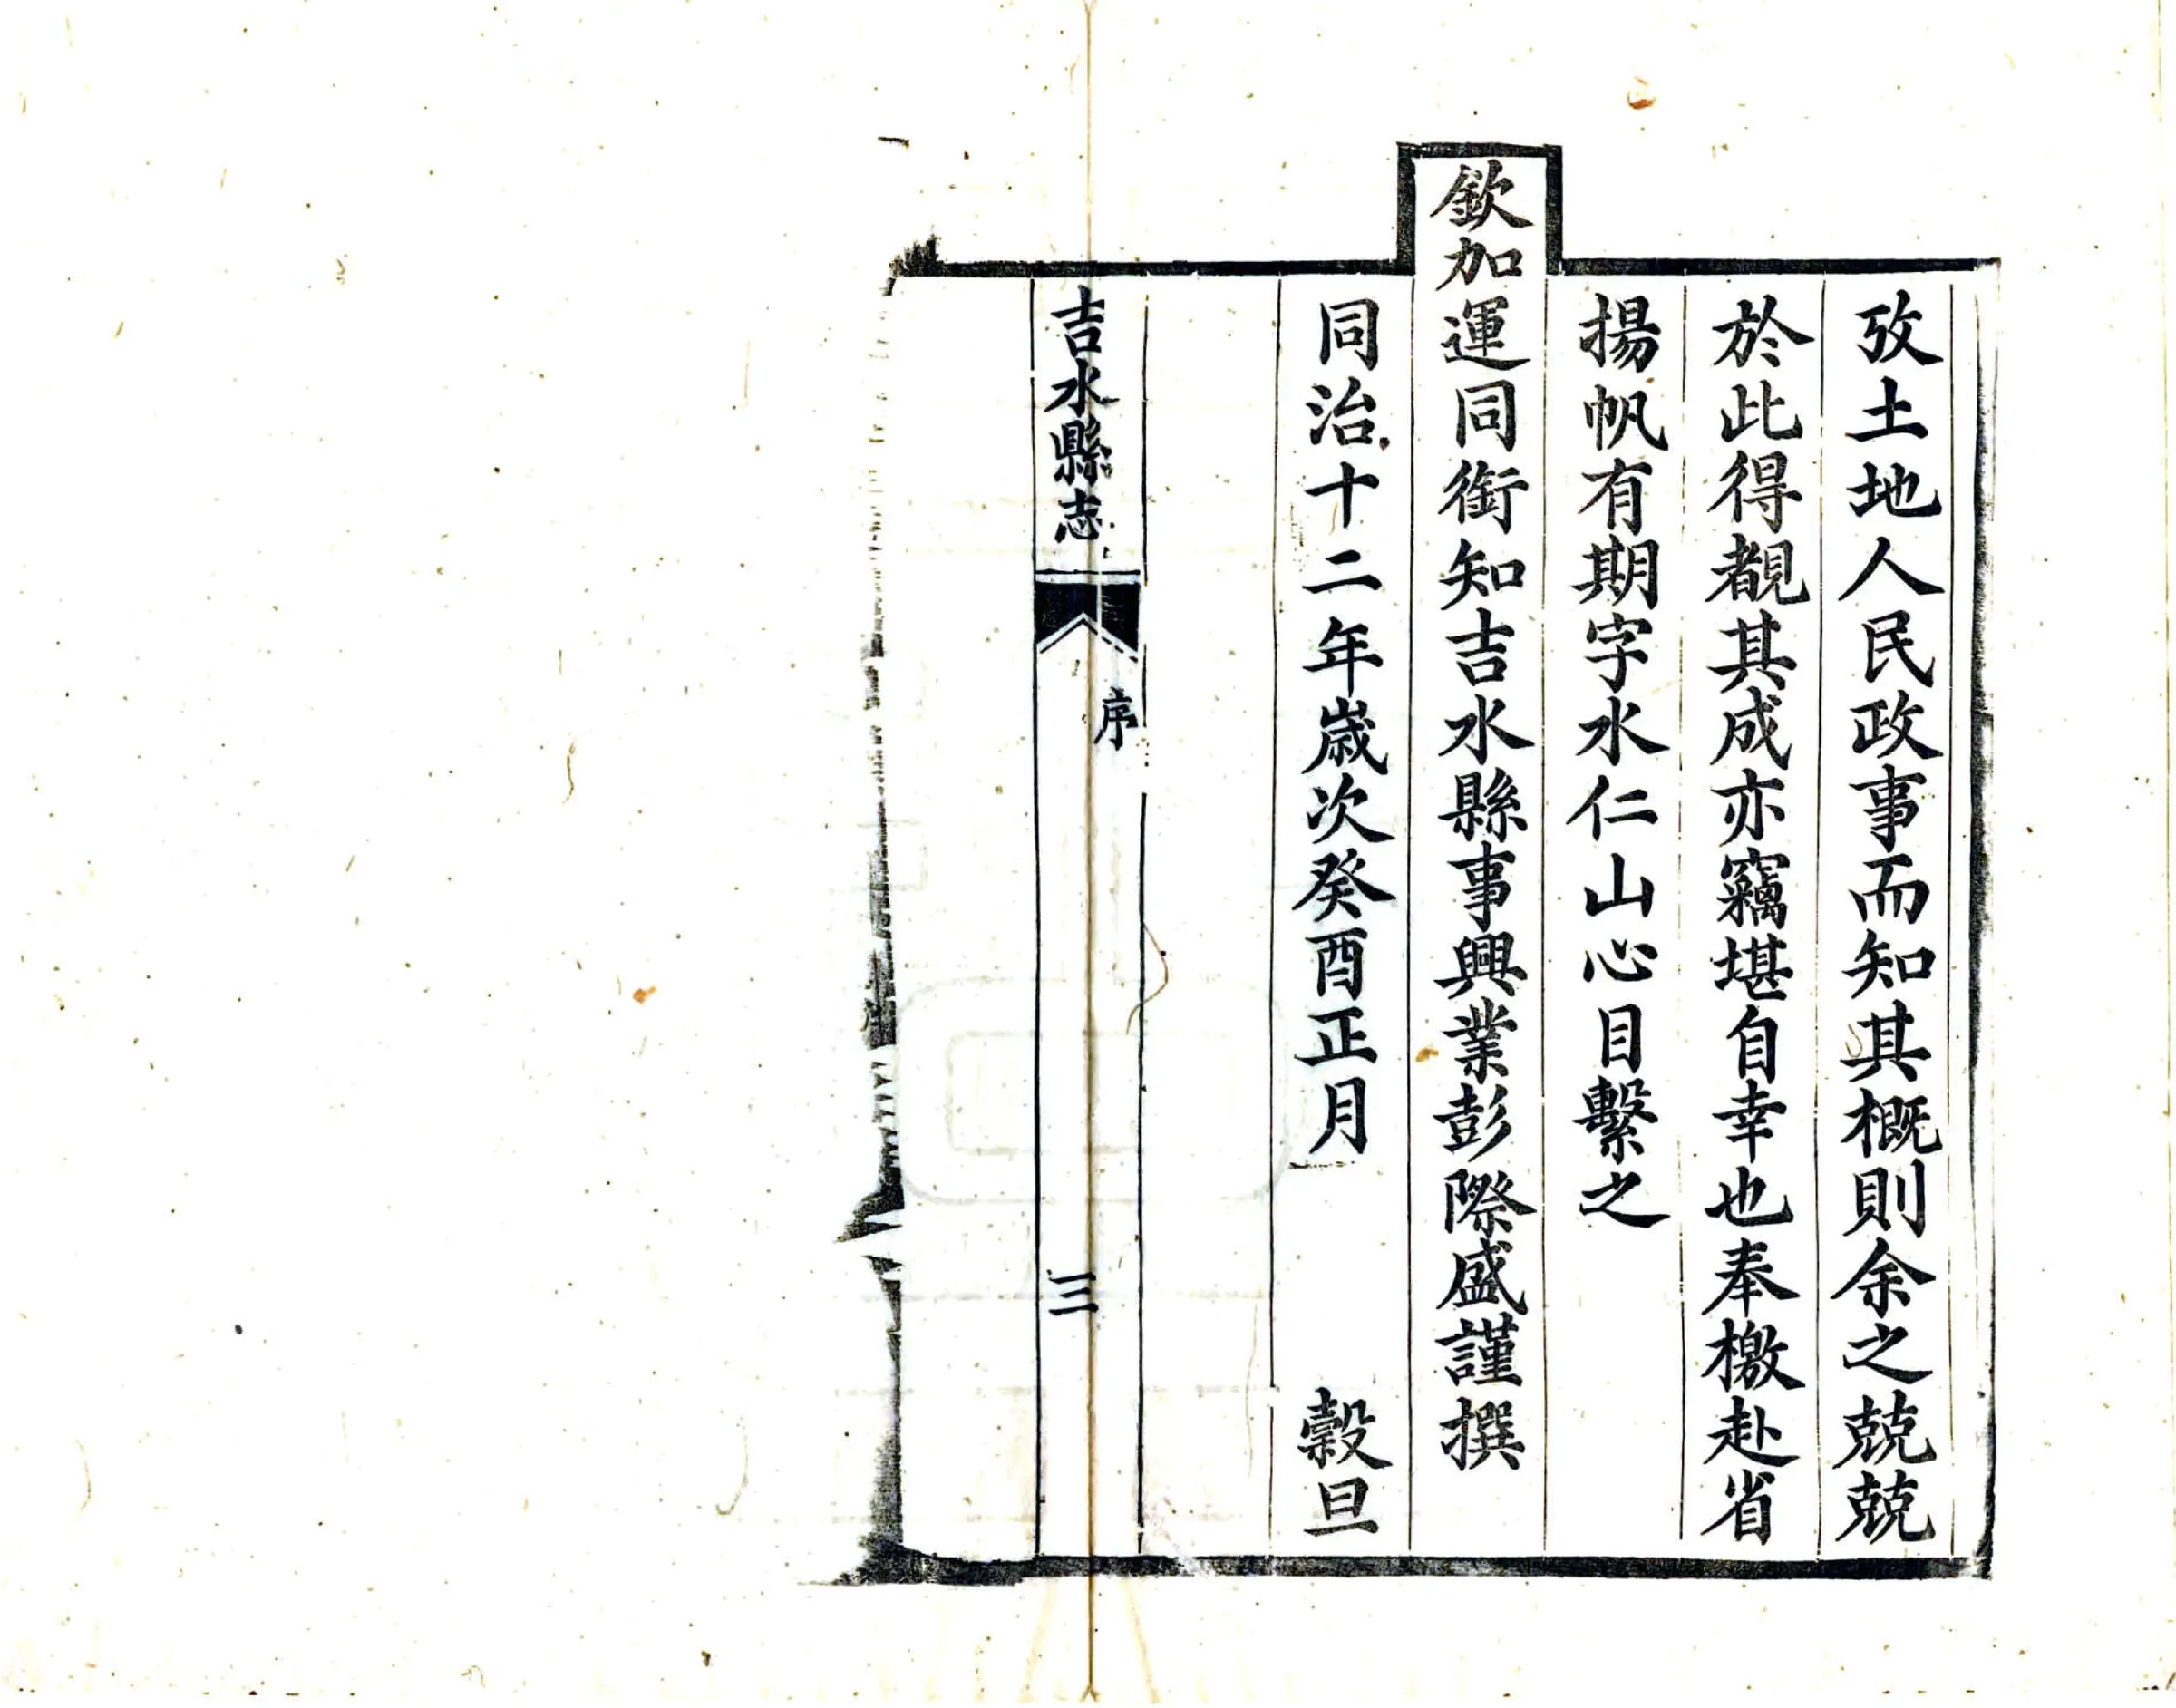 攷土地人民政事而知其概則余之兢兢
於此得覩其成亦竊堪自幸也奉檄赴省
揚帆有期字水仁山心目繫之
欽加運同銜知吉水縣事興業彭際盛謹撰
同治十二年歲次癸酉正月 穀旦
吉水縣志 序 三